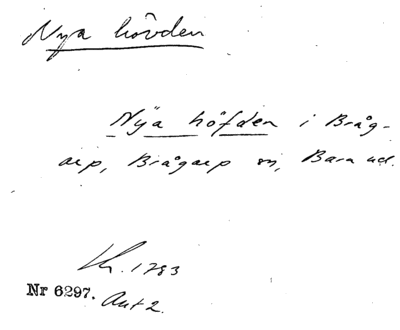 Nya hövden
Nÿa höfden i Bråg-
arp, Brågarp sn, Bara hd.
Lk. 1783
Nr 6297. Akt 2.